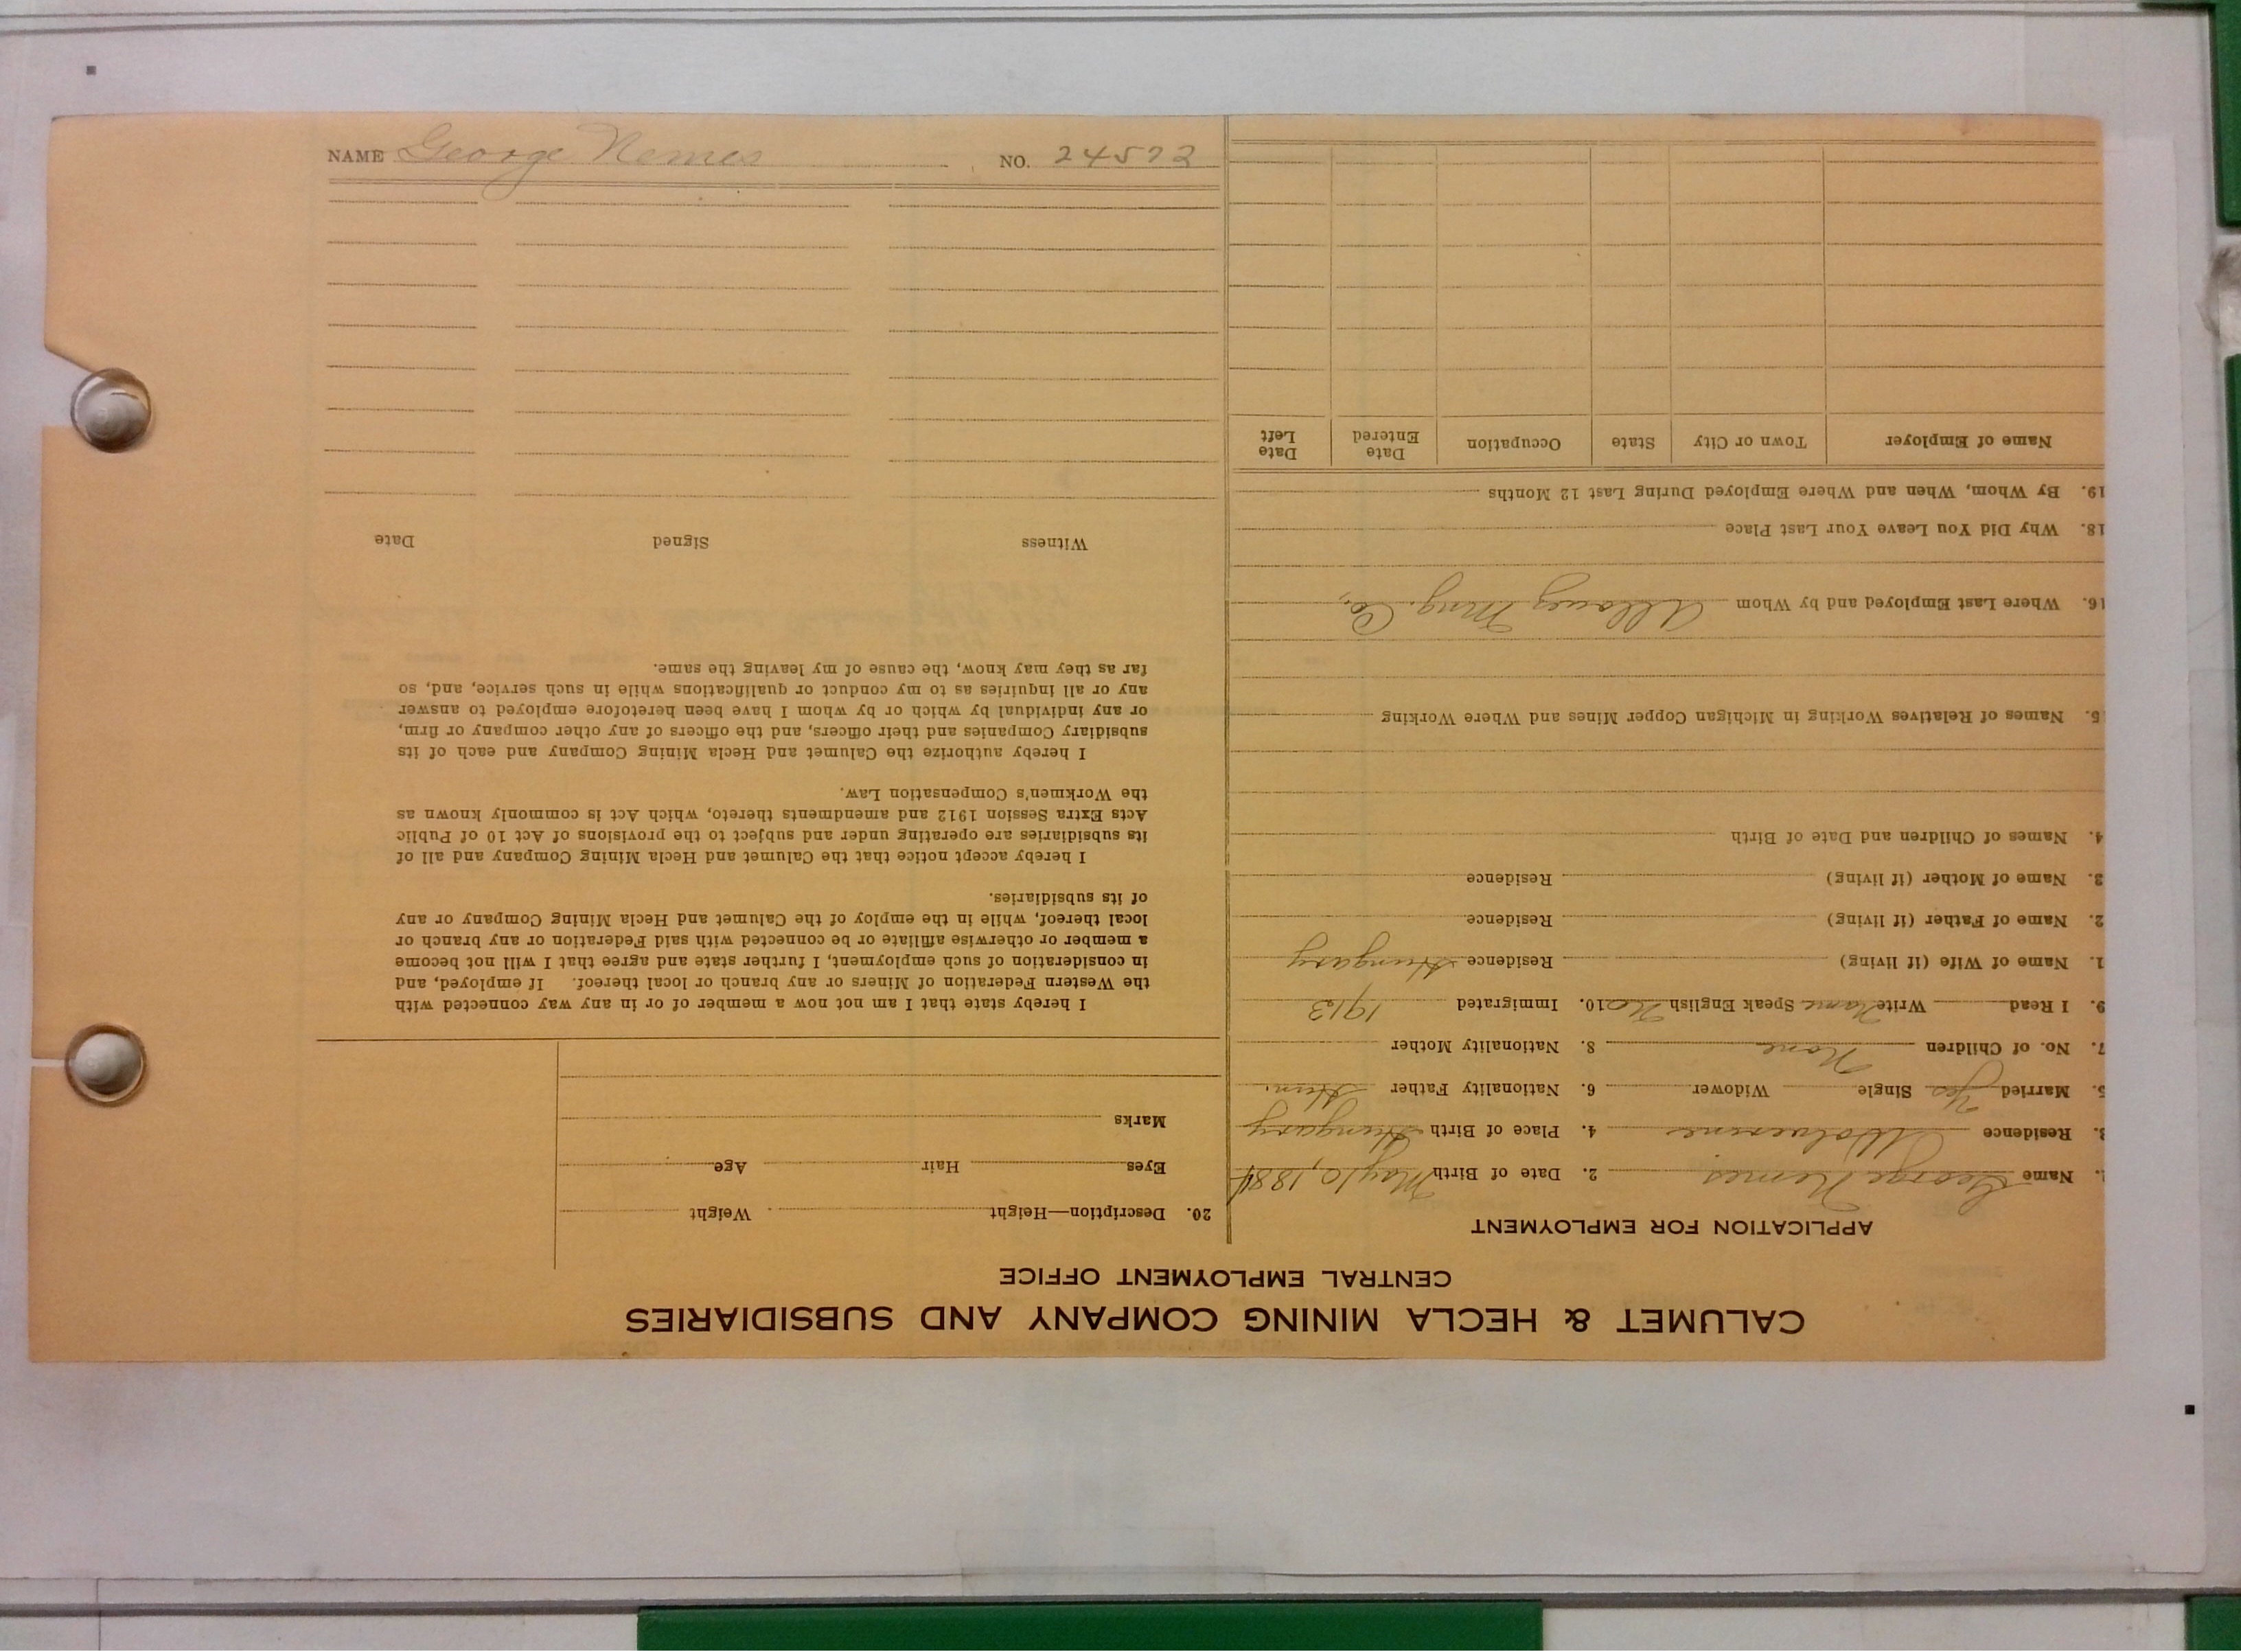 CALUMET & HECLA MINING COMPANY AND SUBSIDIARIES
CENTRAL EMPLOYMENT OFFICE
APPLICATION FOR EMPLOYMENT
1. Name George Nemes 2. Date of Birth May 10, 1884
3. Residence Wolverine 4. Place of Birth Hungary
5. Married Yes Single Widower 6. Nationality Father Hun.
7. No. of Children None 8. Nationality Mother
9. I Read Write Name Speak English No 10. Immigrated 1913
1. Name of Wife (if living) Residence Hungary
2. Name of Father (if living) Residence
3. Name of Mother (if living) Residence
4. Names of Children and Date of Birth
5. Names of Relatives Working in Michigan Copper Mines and Where Working
16. Where Last Employed and by Whom Allouez Mng. Co.,
18. Why Did You Leave Your Last Place
19. By Whom, When and Where Employed During Last 12 Months
Name of Employer Town or City State Occupation Date Entered Date Left
20. Description—Height Weight
Eyes Hair Age
Marks
I hereby state that I am not now a member of or in any way connected with
the Western Federation of Miners or any branch or local thereof. If employed, and
in consideration of such employment, I further state and agree that I will not become
a member or otherwise affiliate or be connected with said Federation or any branch or
local thereof, while in the employ of the Calumet and Hecla Mining Company or any
of its subsidiaries.
I hereby accept notice that the Calumet and Hecla Mining Company and all of
its subsidiaries are operating under and subject to the provisions of Act 10 of Public
Acts Extra Session 1912 and amendments thereto, which Act is commonly known as
the Workmen's Compensation Law.
I hereby authorize the Calumet and Hecla Mining Company and each of its
subsidiary Companies and their officers, and the officers of any other company or firm,
or any individual by which or by whom I have been heretofore employed to answer
any or all inquiries as to my conduct or qualifications while in such service, and, so
far as they may know, the cause of my leaving the same.
Witness Signed Date
NAME George Nemes NO. 24573